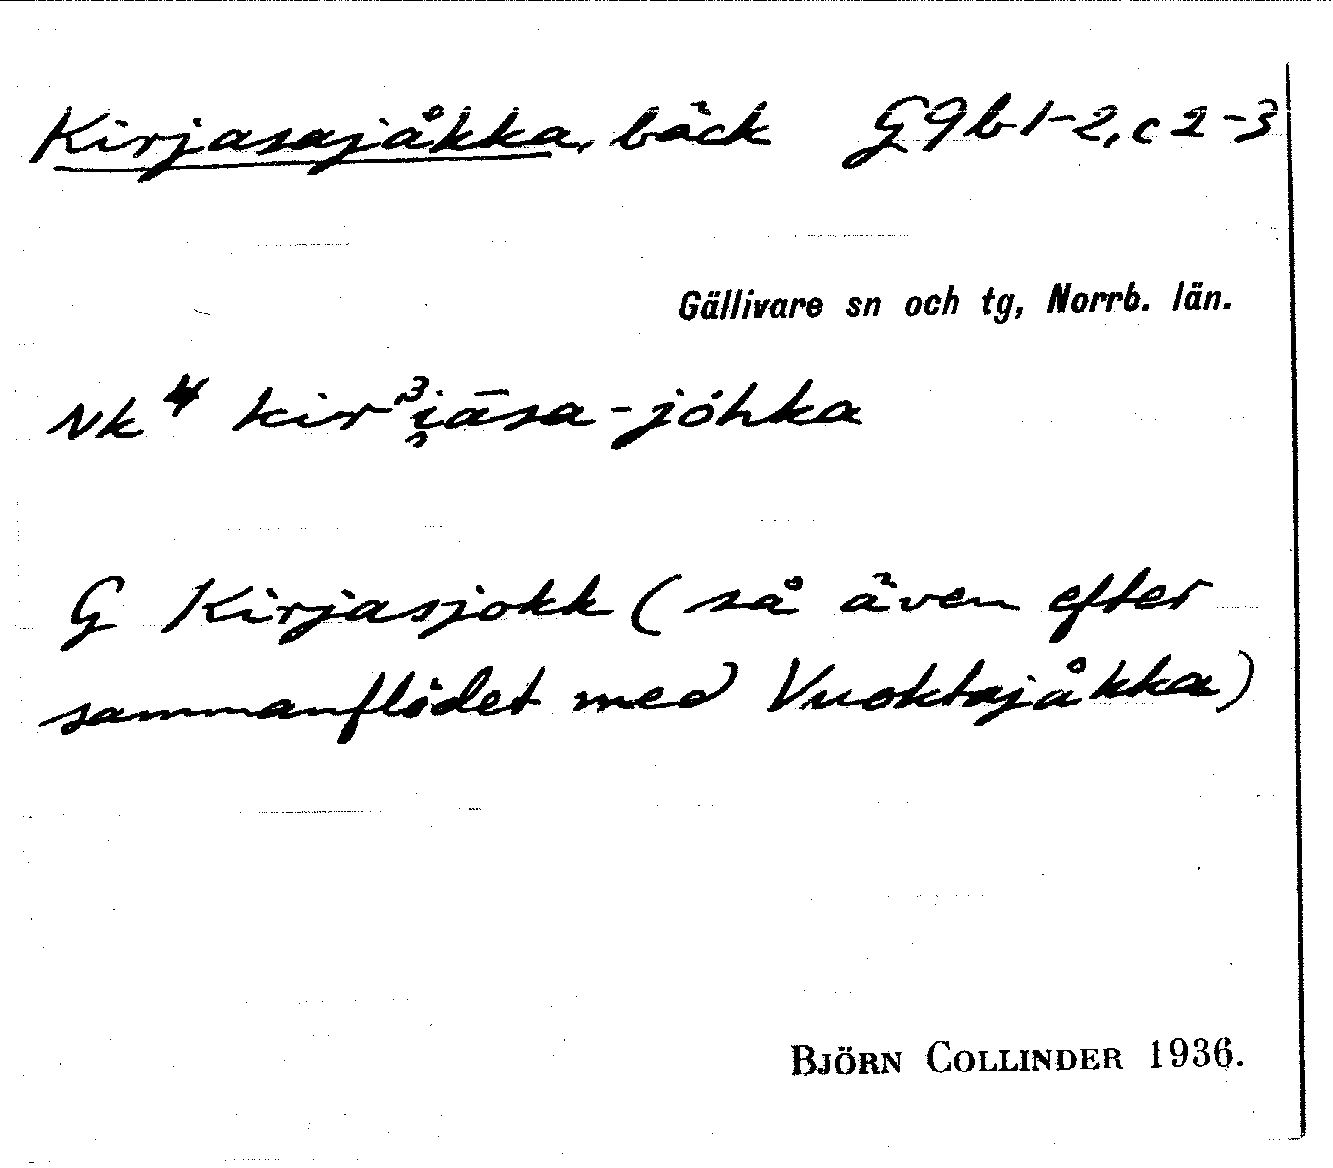 Kirjasajåkka, bäck G9b1-2, c2-3
Gällivare sn och tg, Norrb. län.
Nk⁴ kir³i̯āsa-jóhka
G Kirjasjokk (så även efter
sammanflödet med Vuoktajåkka)
BJÖRN COLLINDER 1936.